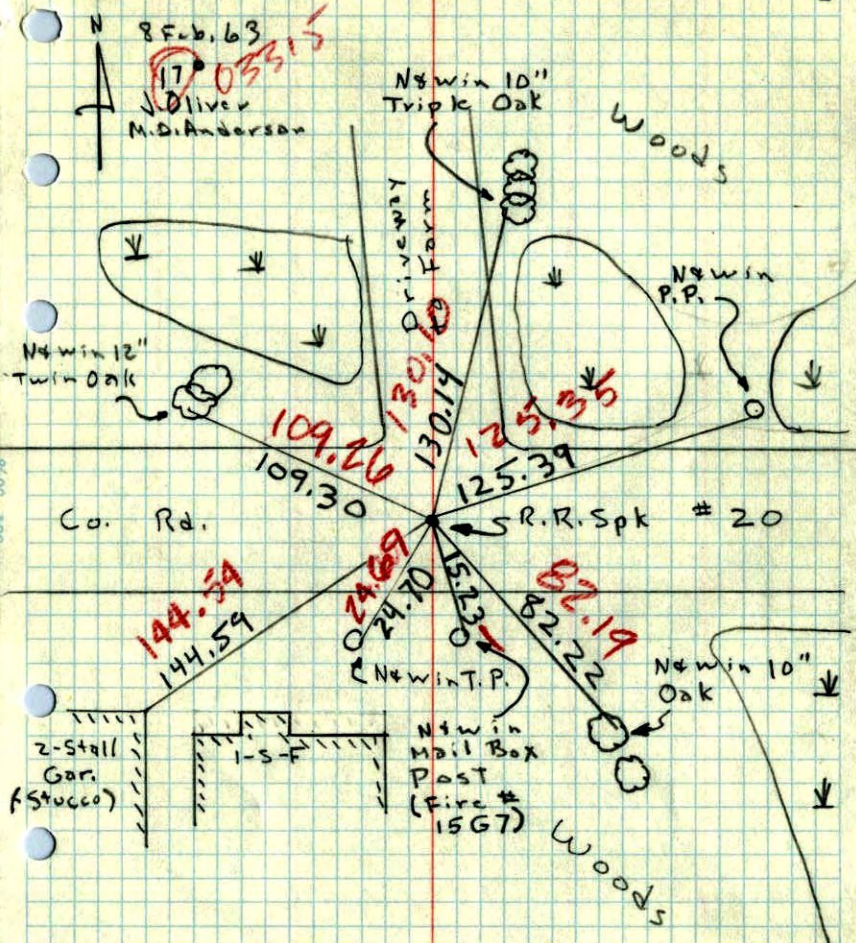 N
8 Feb. 63
17
03315
J. Oliver
M.D. Anderson
N&W in 10"
Triple Oak
Woods
Driveway
to Farm
N&W in
P.P.
N&W in 12"
Twin Oak
109.26
109.30
130.10
130.14
125.35
125.39
Co. Rd.
R.R. Spk # 20
144.54
144.59
24.69
24.70
15.23
82.19
82.22
N&W in T.P.
N&W in 10"
Oak
2-Stall
Gar.
(Stucco)
1-S-F
N&W in
Mail Box
Post
(Fire #
15G7)
Woods